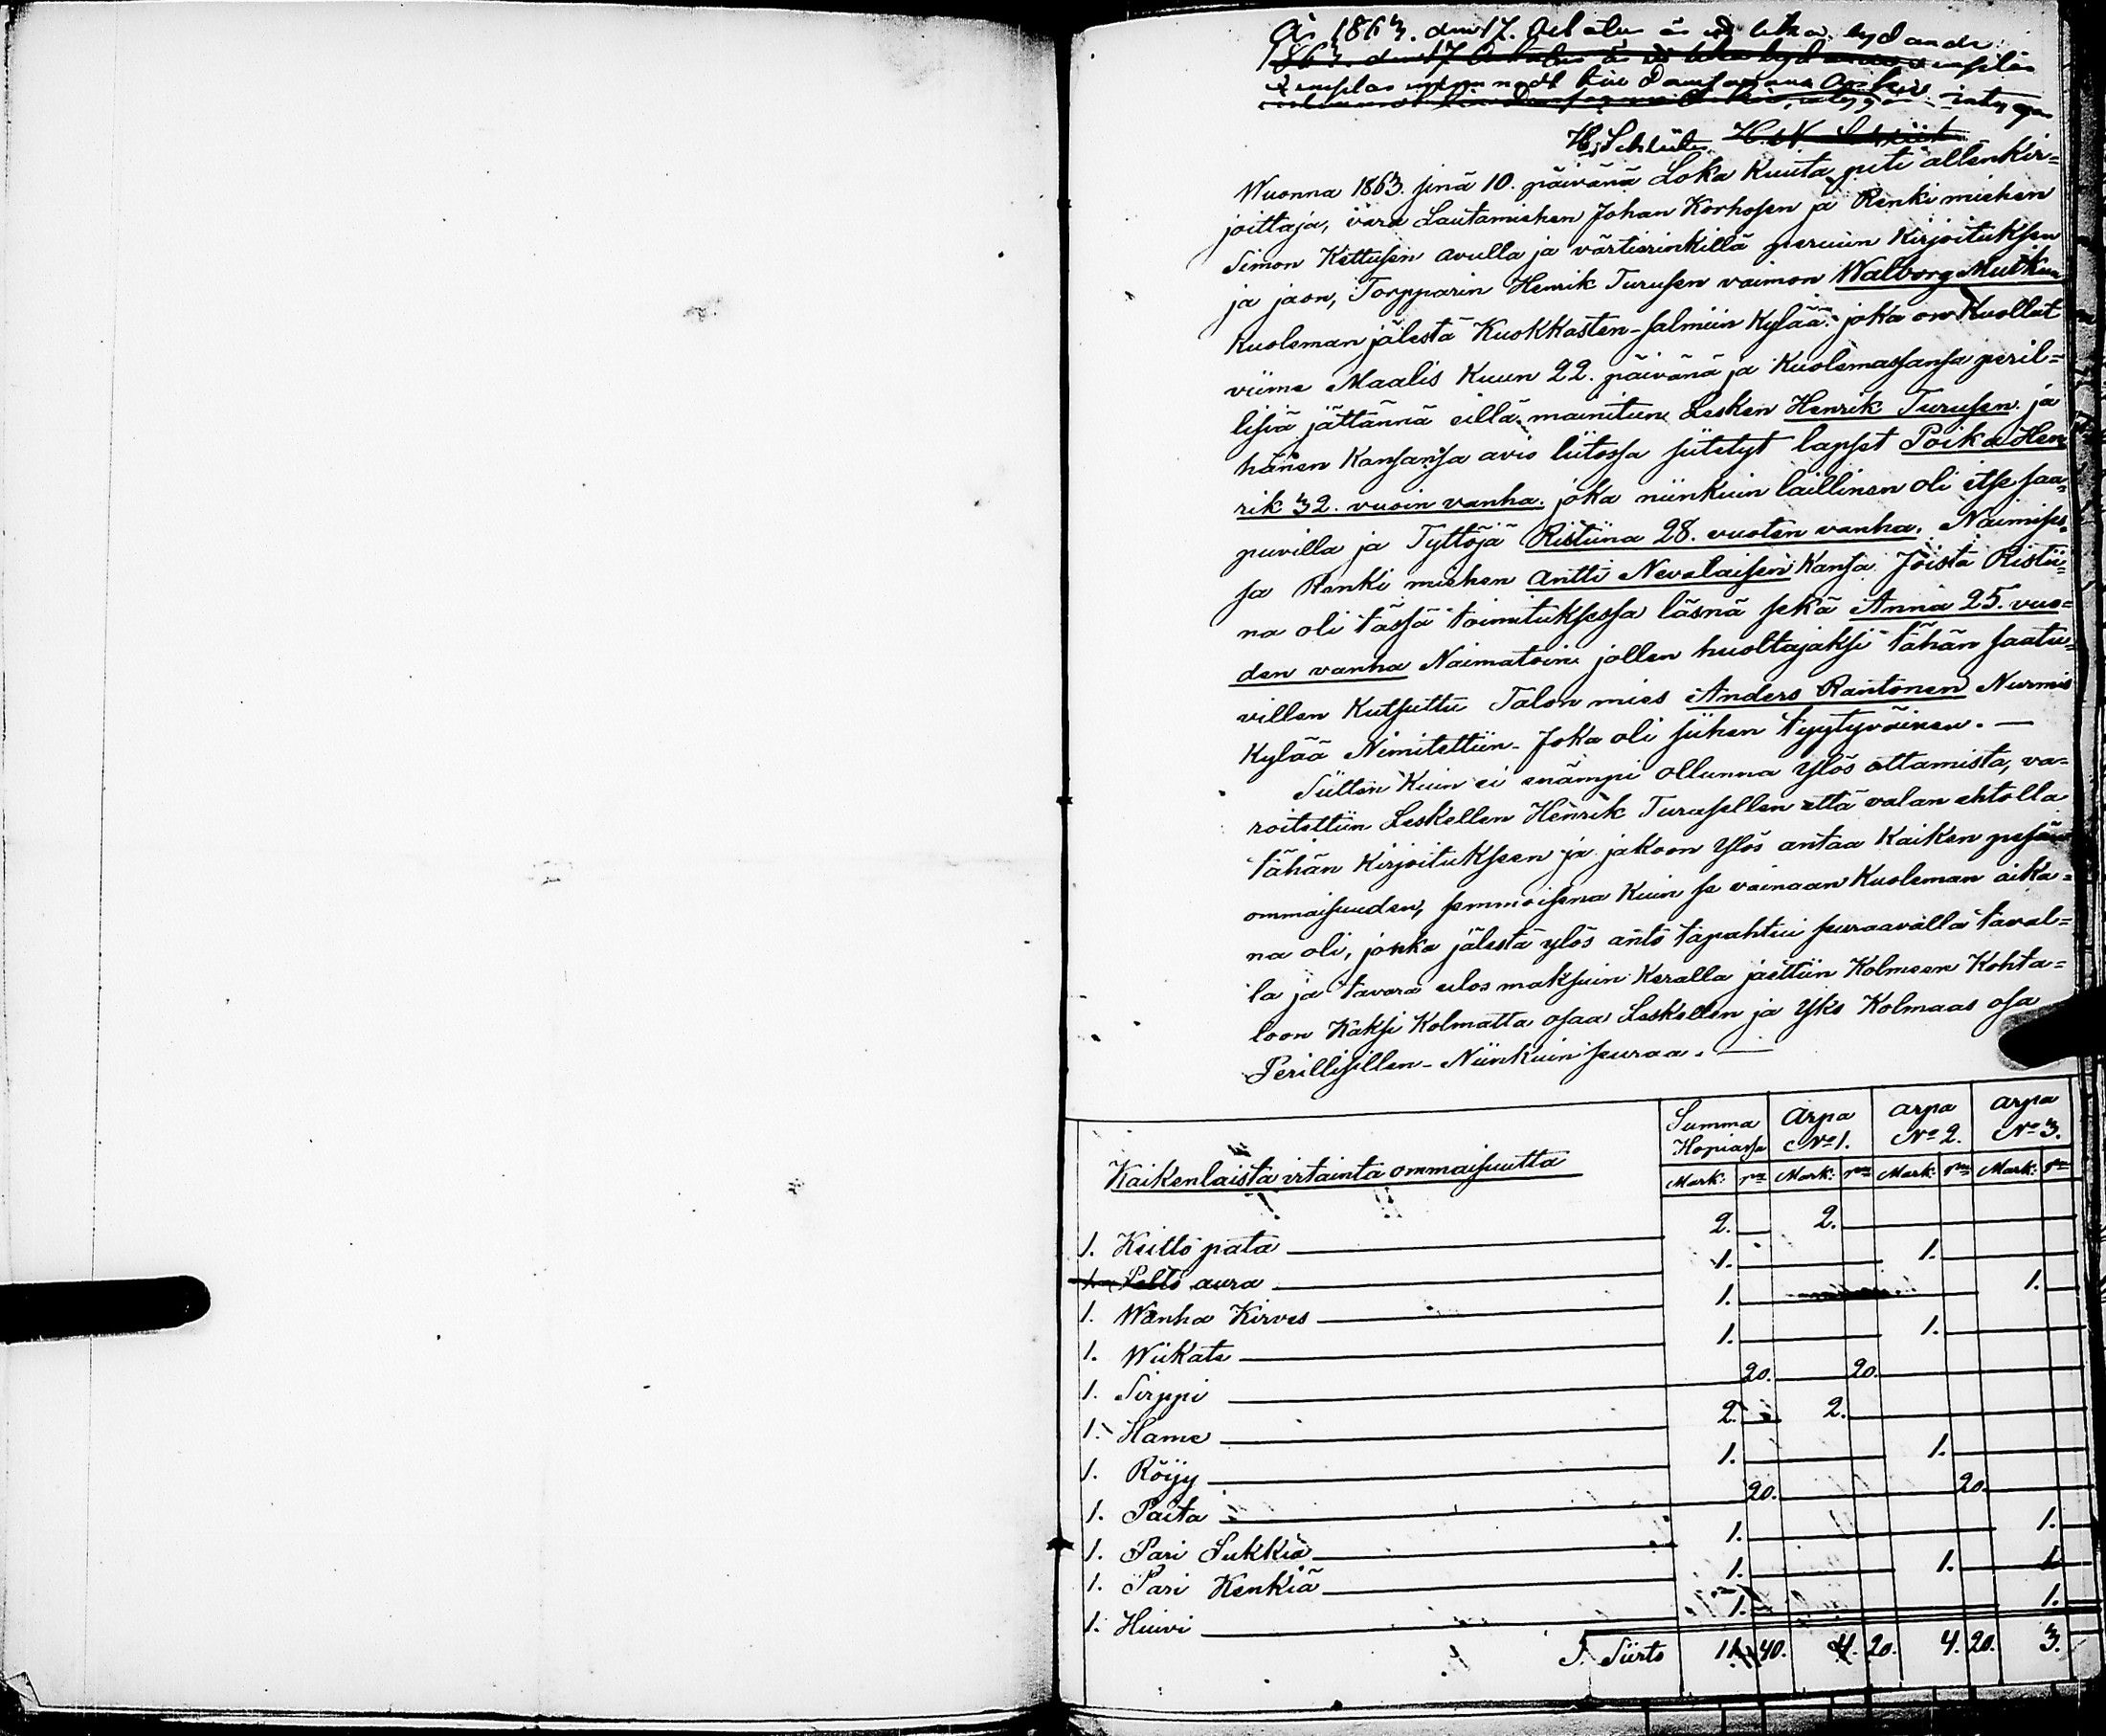 År 1863. den 17. October är
1863. den 17
exemplar
intygar
H. Schlüter
Wuonna 1863. sinä 10. päivänä Loka Kuuta piti allenkir=
joittaja, värä Lautamiehen Johan Korhosen ja Renki miehen
Simon Kettusen avulla ja värtierinkillä peruun Kirjoituksen
ja jaon, Torpparin Henrik Turusen vaimon Walborg Mutkun
Kuoleman jälestä Kuokkasten-salmiin Kylää joka on Kuollut
viime Maalis Kuun 22. päivänä ja Kuolemassansa peril=
lisiä jättännä eillä mainitun Lesken Henrik Turusen ja
hänen Kansansa avio liitossa siitetyt lapset Poika Hen=
rik 32. vuoin vanha. joka niinkuin laillinen oli itse saa=
puvilla ja Tyttöjä Ristiina 28. vuoten vanha. Naimises=
sa Renki miehen Antti Nevalaisen Kansa Joista Ristii=
na oli tässä toimituksessa läsnä sekä Anna 25. vuo=
den vanha Naimatoin jollen huoltajaksi tähän saatu=
villen Kutsuttu Talon mies Anders Rantonen Nurmis
Kylää Nimitettiin - Joka oli siihen tyytyväinen. —
Siitten Kuin ei enämpi ollunna Ylös ottamista, va=
roitettiin Leskellen Henrik Turusellen että valan ehtolla
tähän Kirjoitukseen ja jakoon Ylös antaa Kaiken pesän
ommaisuuden, semmoisena Kuin se vainaan Kuoleman aika=
na oli, jonka jälestä ylös anto tapahtui seuraavalla taval=
la ja tavara ulos maksuin Keralla jaettiin Kolmeen Kohta=
loon Kaksi Kolmatta osaa Leskellen ja Yks Kolmaas osa
Perillisillen - Niinkuin seuraa. —
Kaikenlaista irtainta ommaisuutta Summa Hopiassa Arpa No 1. Arpa No 2. Arpa No 3.
Mark: Mark: Mark: Mark:
1. Keitto pata 2. 2.
1. Pelto aura 1. 1.
1. Wanha Kirves 1. 1.
1. Wiikate 1. 1.
1. Sirppi 20. 20.
1. Hame 2. 2.
1. Röijy 1. 1.
1. Paita 20. 20.
1. Pari Sukkia 1. 1.
1. Pari Kenkiä 1. 1. 1
1. Huivi 1. 1.
S. Siirto 11 40. 4. 20. 4. 20. 3.